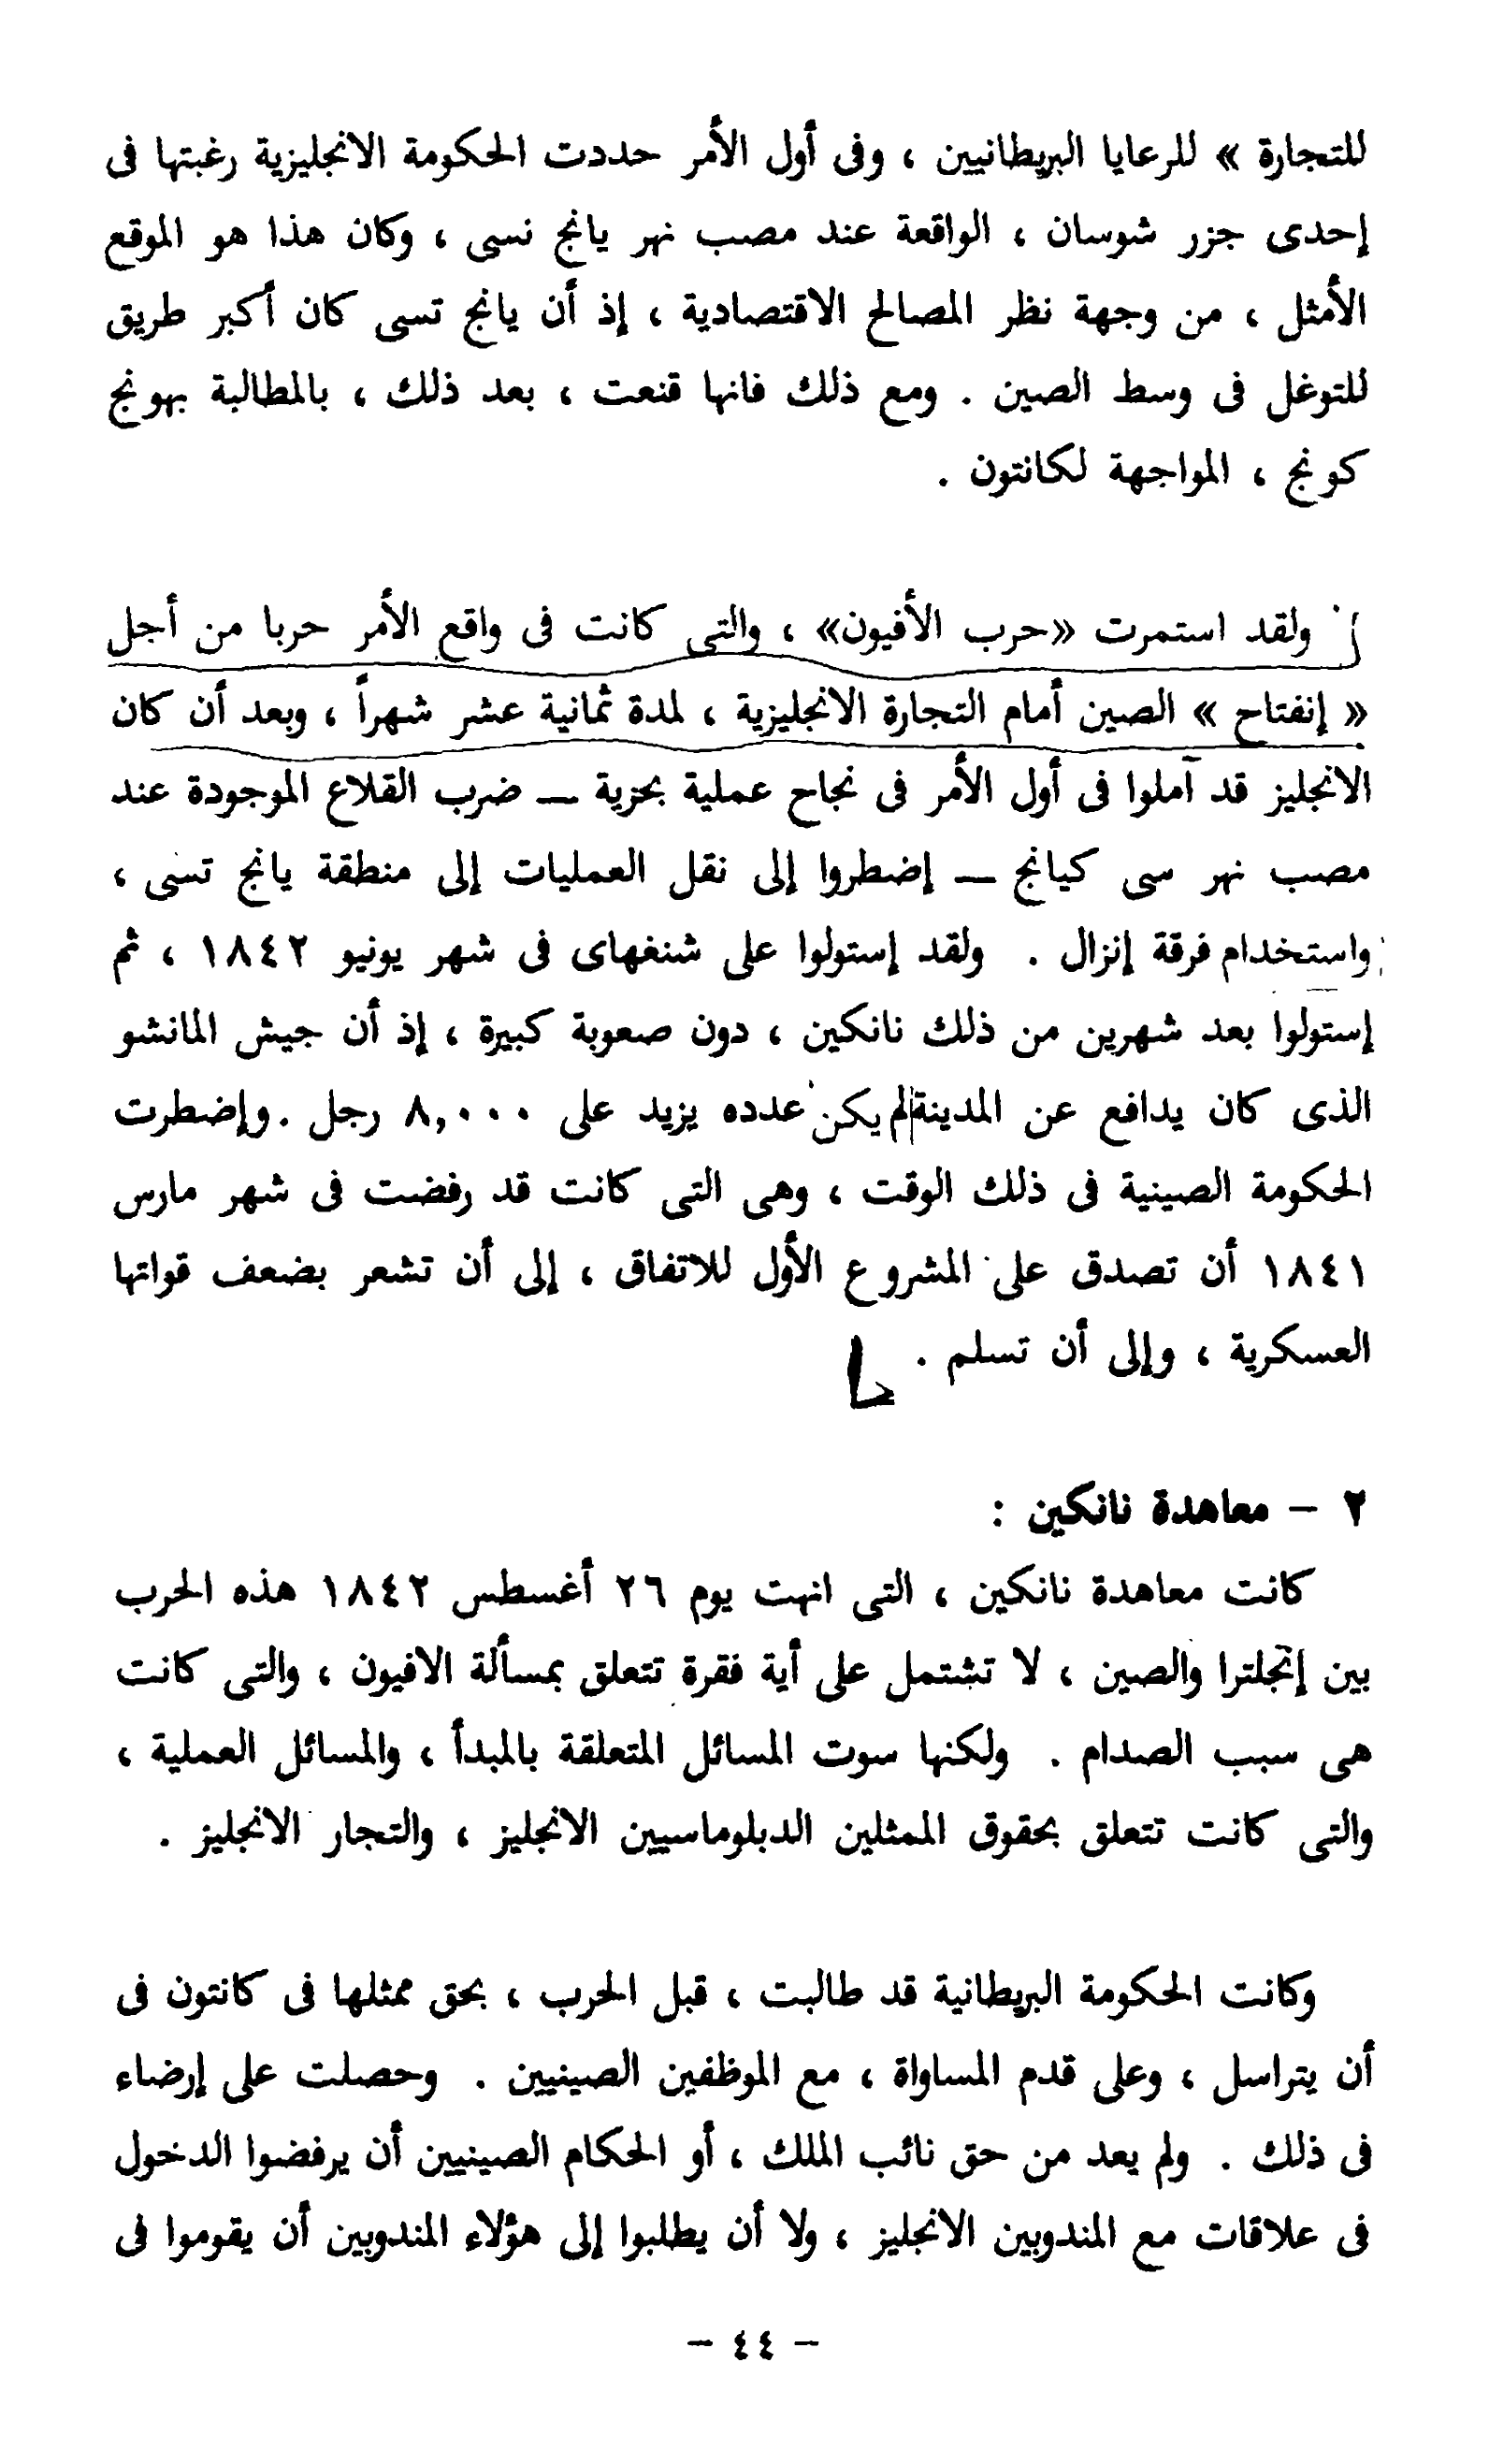 للتجارة » للرعايا البريطانيين ، وفى أول الأمر حددت الحكومة الانجليزية رغبتها فى
إحدى جزر شوسان ، الواقعة عند مصب نهر يانج نسى ، وكان هذا هو الموقع
الأمثل ، من وجهة نظر المصالح الاقتصادية ، إذ أن يانج تسى كان أكبر طريق
للتوغل فى وسط الصين . ومع ذلك فانها قنعت ، بعد ذلك ، بالمطالبة بهونج
كونج ، المواجهة لكانتون .
ولقد استمرت «حرب الأفيون» ، والتى كانت فى واقع الأمر حربا من أجل
« إنفتاح » الصين أمام التجارة الانجليزية ، لمدة ثمانية عشر شهراً ، وبعد أن كان
الانجليز قد آملوا فى أول الأمر فى نجاح عملية بحرية — ضرب القلاع الموجودة عند
مصب نهر سى كيانج — إضطروا إلى نقل العمليات إلى منطقة يانج تسى ،
واستخدام فرقة إنزال . ولقد إستولوا على شنغهاى فى شهر يونيو ١٨٤٢ ، ثم
إستولوا بعد شهرين من ذلك نانكين ، دون صعوبة كبيرة ، إذ أن جيش المانشو
الذى كان يدافع عن المدينة لم يكن عدده يزيد على ٨,٠٠٠ رجل . وإضطرت
الحكومة الصينية فى ذلك الوقت ، وهى التى كانت قد رفضت فى شهر مارس
١٨٤١ أن تصدق على المشروع الأول للاتفاق ، إلى أن تشعر بضعف قواتها
العسكرية ، وإلى أن تسلم .
٢ – معاهدة نانكين :
كانت معاهدة نانكين ، التى انهت يوم ٢٦ أغسطس ١٨٤٢ هذه الحرب
بين إنجلترا والصين ، لا تشتمل على أية فقرة تتعلق بمسألة الافيون ، والتى كانت
هى سبب الصدام . ولكنها سوت المسائل المتعلقة بالمبدأ ، والمسائل العملية ،
والتى كانت تتعلق بحقوق الممثلين الدبلوماسيين الانجليز ، والتجار الانجليز .
وكانت الحكومة البريطانية قد طالبت ، قبل الحرب ، بحق ممثلها فى كانتون فى
أن يتراسل ، وعلى قدم المساواة ، مع الموظفين الصينيين . وحصلت على إرضاء
فى ذلك . ولم يعد من حق نائب الملك ، أو الحكام الصينيين أن يرفضوا الدخول
فى علاقات مع المندوبين الانجليز ، ولا أن يطلبوا إلى هؤلاء المندوبين أن يقوموا فى
– ٤٤ –